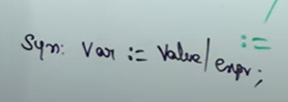 :=
Syn: Var := Value/expr;